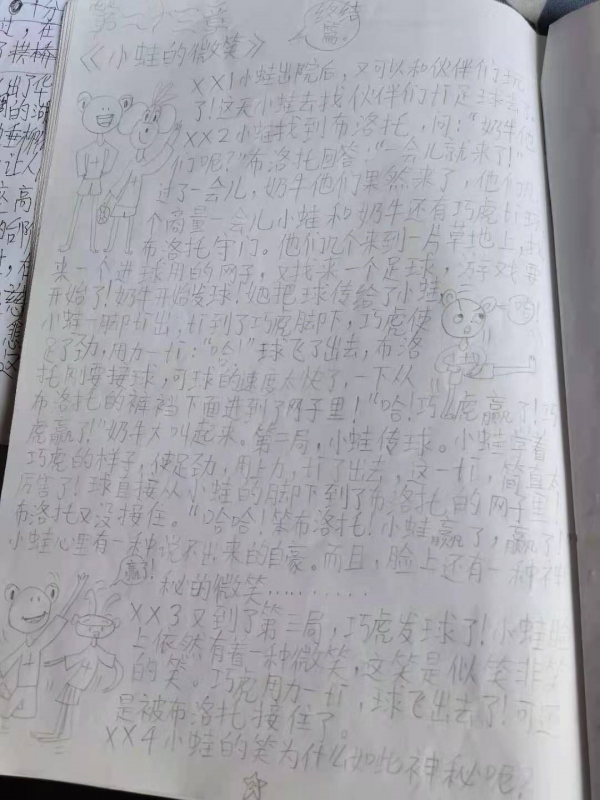 第二十二章
终结篇。
《小蛙的微笑》
XX1小蛙出院后，又可以和伙伴们玩
了！这天小蛙去找伙伴们打足球去
XX2小蛙找到布洛托，问："奶牛他
们呢？"布洛托回答："一会儿就来了！"
过了一会儿，奶牛他们果然来了，他们
个商量一会儿小蛙和奶牛还有巧虎
布洛托守门。他们几个来到一片草地上，找
来一个进球用的网子，又找来一个足球，游戏
开始了！奶牛开始发球！她把球传给了小蛙，
小蛙一脚打出，打到了巧虎脚下，巧虎使
足了劲，用力一打："哈！"球飞了出去，布洛
托刚要接球，可球的速度太快了，一下从
布洛托的裤裆下面进到了网子里！"哈！巧虎赢了！巧
虎赢了！"奶牛大叫起来。第二局，小蛙传球。小蛙学着
巧虎的样子，使足劲，用力打了出去，这一打，简直太
厉害了！球直接从小蛙的脚下到了布洛托的网子里！
布洛托又没接住。"哈哈！笨布洛托！小蛙赢了，赢了！
小蛙心里有一种说不出来的自豪。而且，脸上还有一种神
秘的微笑…………
赢！
XX3又到了第三局，巧虎发球了！小蛙脸
上依然有着一种微笑，这笑是似笑非笑
的笑。巧虎用力一打，球飞出去了！可还
是被布洛托接住了。
XX4小蛙的笑为什么如此神秘呢？